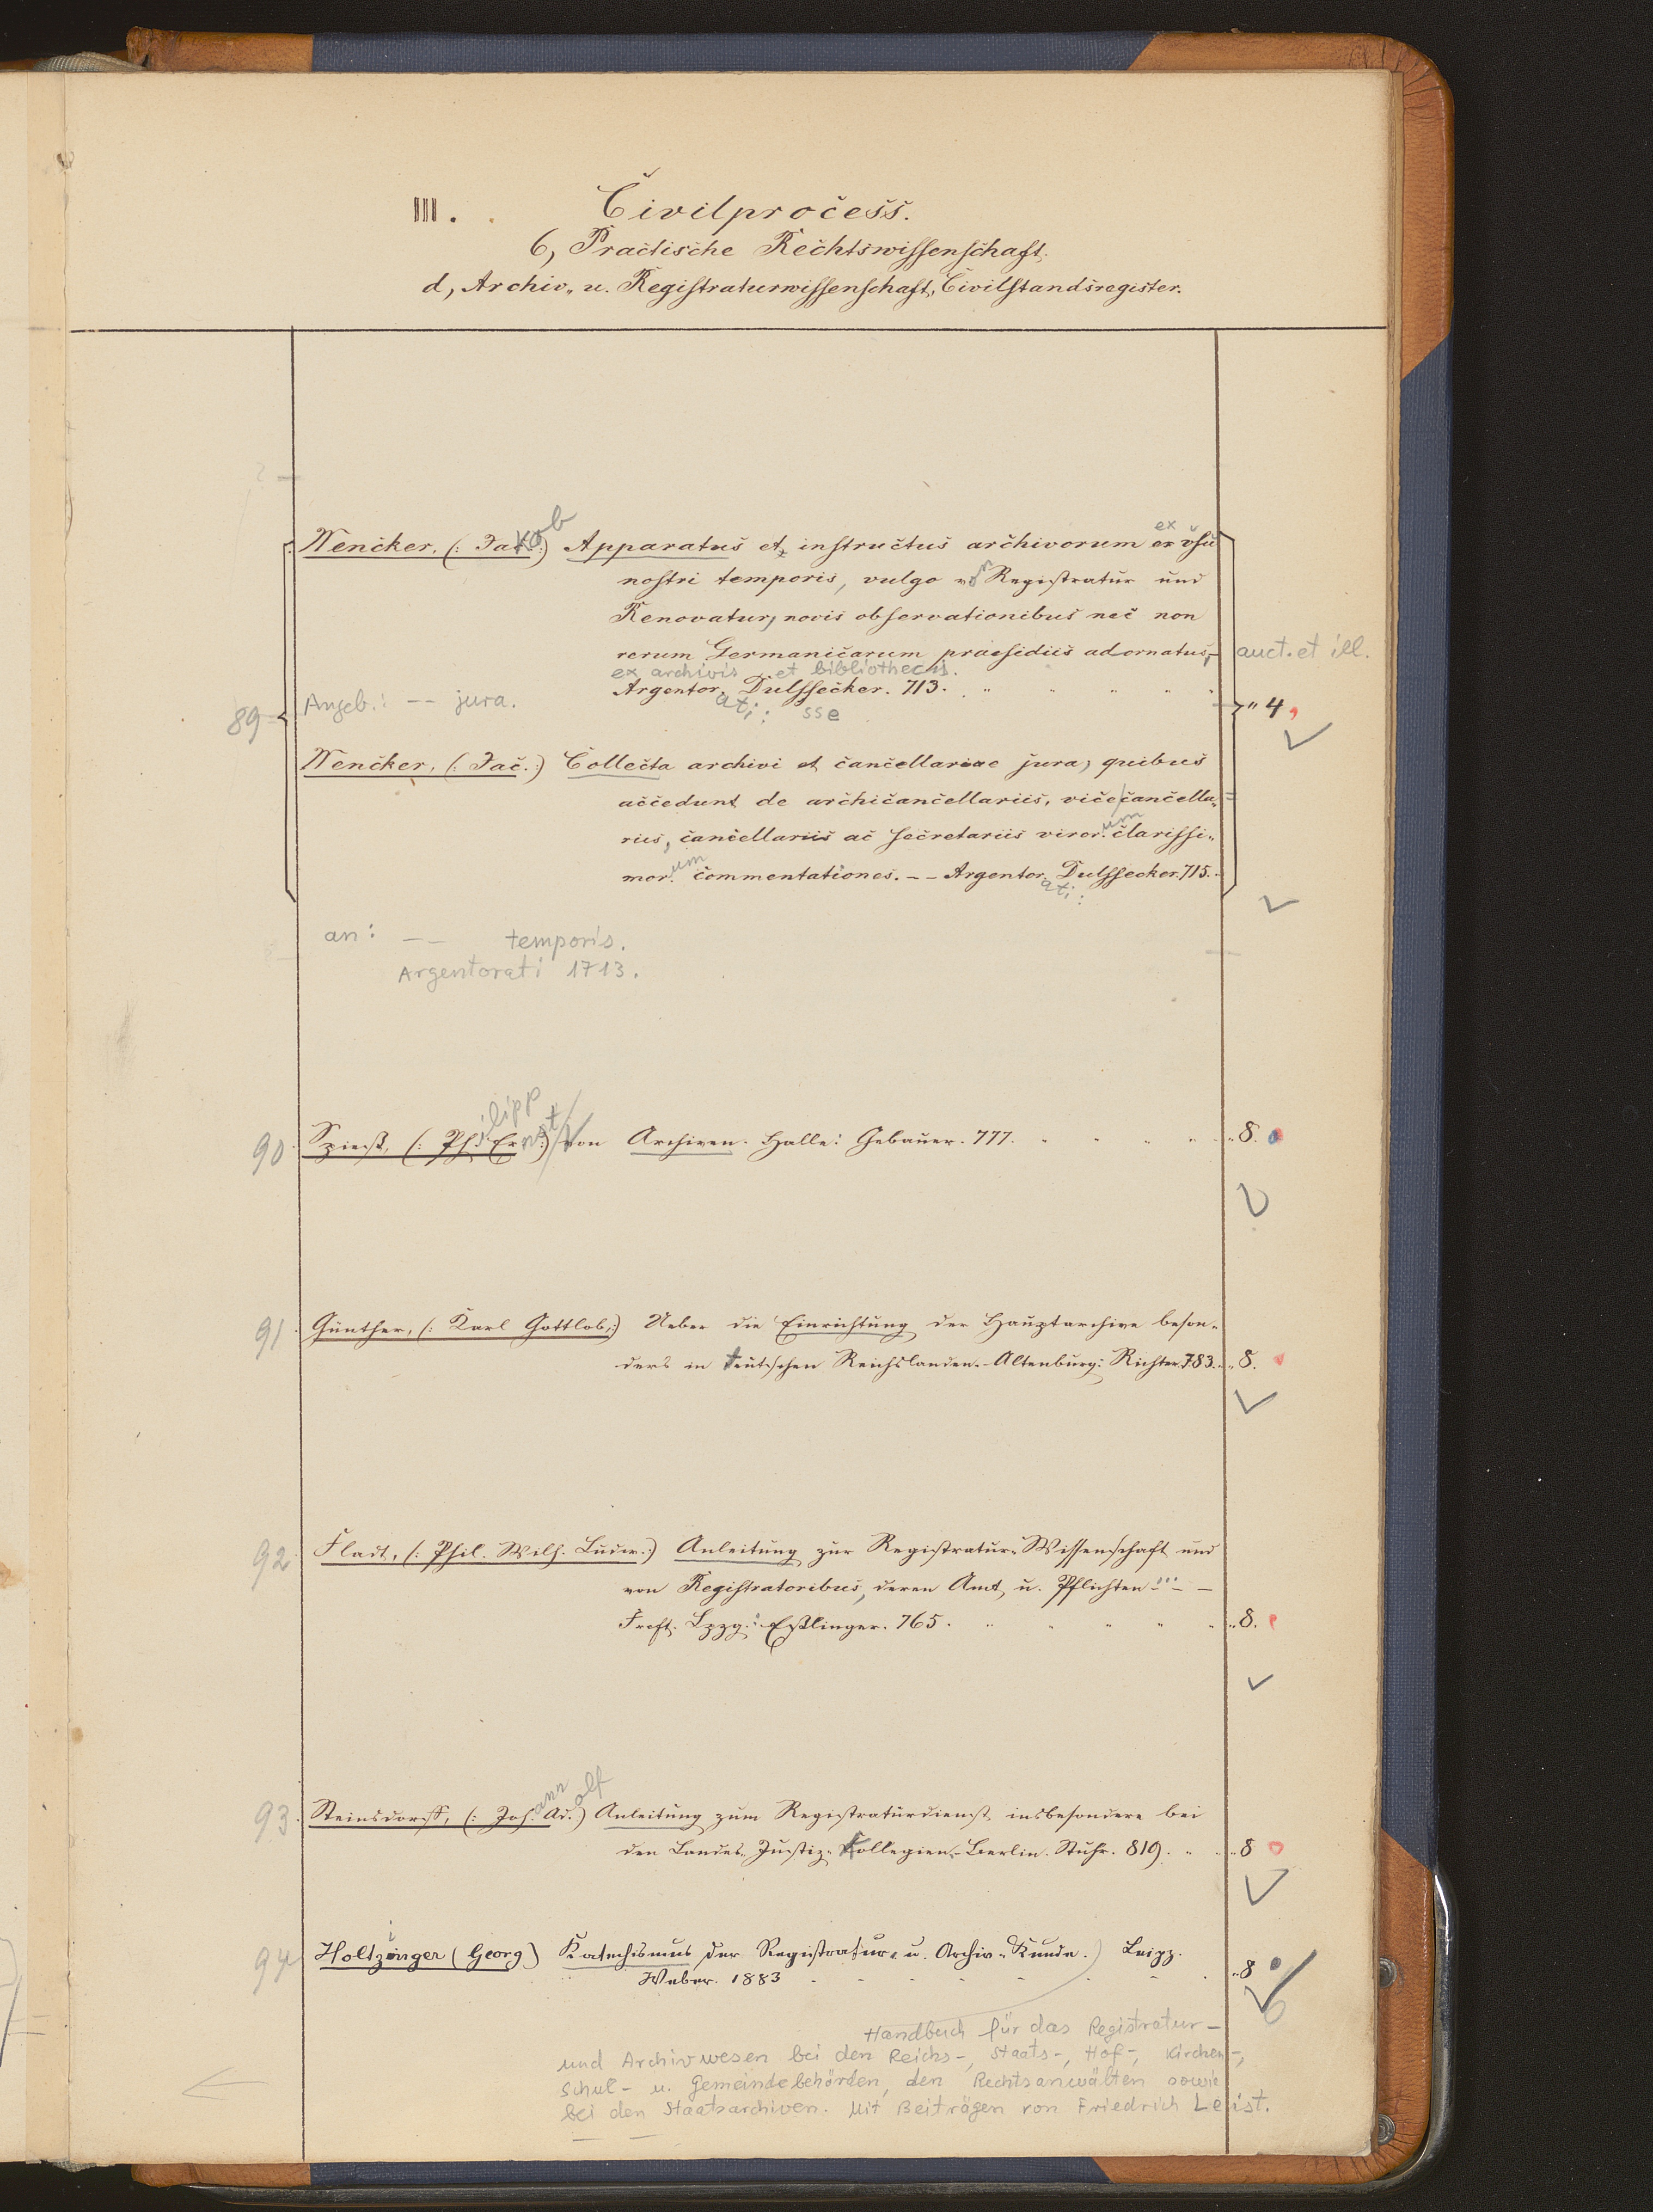 III. Civilprocess.
6, Practische Rechtswissenschaft.
d, Archiv- u. Registraturwissenschaft, Civilstandsregister.
Wencker, (: Jakob :) Apparatus et instructus archivorum ex usu
nostri temporis, vulgo von Registratur und
Renovatur, novis observationibus nec non
rerum Germanicarum praesidiis adornatus, - auct. et ill.
ex archivis et bibliothecis.
Argentor. Dulssecker. 713. " 4
ati: sse
89 Angeb.: -- jura.
Wencker, (: Jac. :) Collecta archivi et cancellariae jura, quibus
accedunt de archicancellariis, vicecancella-
riis, cancellariis ac secretariis viror.um clarissi-
mor.um commentationes. -- Argentor.ati: Dulssecker. 715.
an: -- temporis.
Argentorati 1713.
90 Spieß, (: Ph.ilipp Ernst :) Von Archiven. Halle: Gebauer. 777. " 8.
91 Günther, (: Karl Gottlob, :) Ueber die Einrichtung der Hauptarchive beson-
ders in teutschen Reichslanden. - Altenburg: Richter. 783. " 8.
92 Fladt, (: Phil. Wilh. Ludw. :) Anleitung zur Registratur-Wissenschaft und
von Registratoribus, deren Amt u. Pflichten ... -
Frcft. Lpzg.: Eßlinger. 765. " 8.
93. Steinsdorff, (: Joh.ann Ad.olf :) Anleitung zum Registraturdienst insbesondere bei
den Landes-Justiz-Kollegien. - Berlin. Stuhr. 819. " 8
94 Holtzinger (Georg) Katechismus der Registratur- u. Archiv-Kunde.) Leipz.
Weber. 1883 " 8
Handbuch für das Registratur-
und Archivwesen bei den Reichs-, Staats-, Hof-, Kirchen-,
Schul- u. Gemeindebehörden, den Rechtsanwälten sowie
bei den Staatsarchiven. Mit Beiträgen von Friedrich Leist.